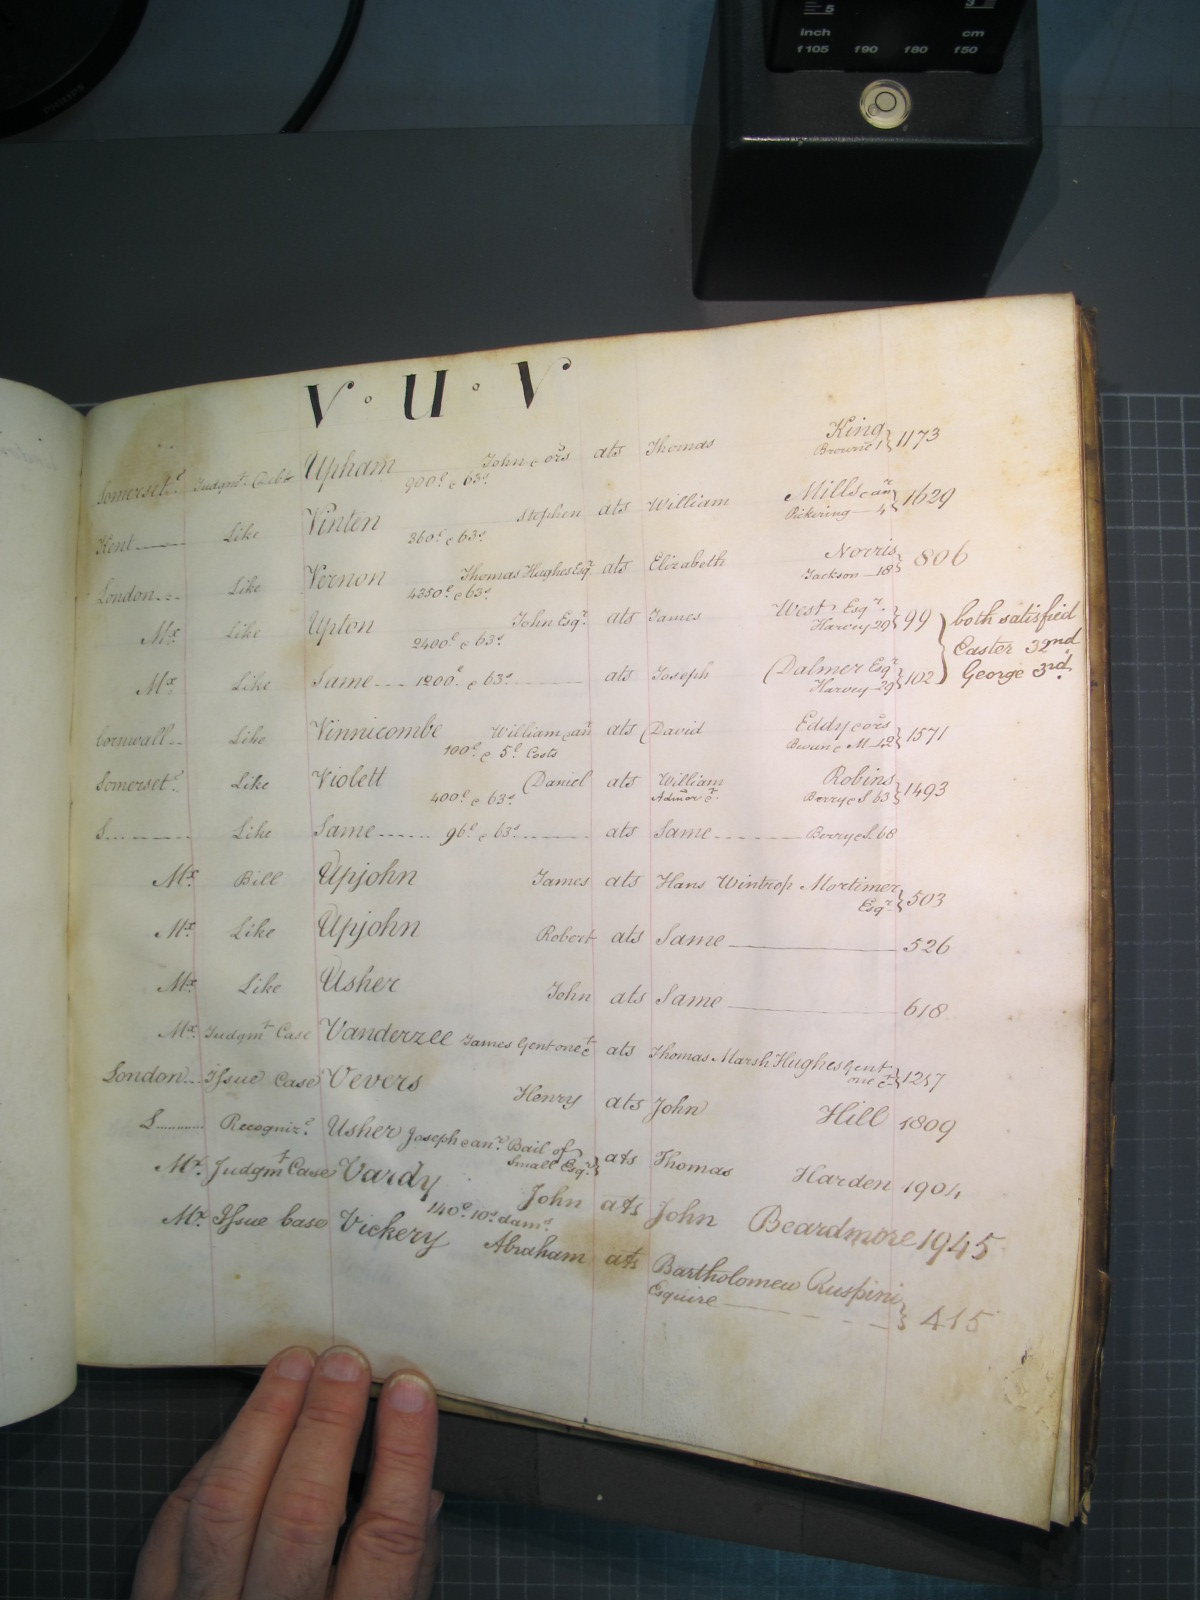 5 3
inch cm
f105 f90 f80 f50
V · U · V
Somerset Judgmt. Debt Upham John & ors ats Thomas King 1173
900£ & 63s Browne 1
Kent Like Vinten Stephen ats William Mills & anr 1629
260£ & 63s Pickering 4
London Like Vernon Thomas Hughes Esqr. ats Elizabeth Norris 806
4350£ & 63s Jackson 18
Mx. Like Upton John Esqr. ats James West Esqr. 99 both satisfied
2400£ & 63s Harvey 29 Easter 32nd
Mx. Like Same 1200£ & 63s ats Joseph Dalmer Esqr. 102 George 3rd.
Harvey 29
Cornwall Like Vinnicombe William & anr ats David Eddy & ors 1571
100£ & 5£ Costs M 42
Somerset Like Violett Daniel ats William Robins 1493
400£ & 63s Admor &c. Berry & S. 63
S Like Same 96£ & 63s ats Same Berry & S. 68
Mx. Bill Upjohn James ats Hans Wintrop Mortimer 503
Esqr.
Mx. Like Upjohn Robert ats Same 526
Mx. Like Usher John ats Same 618
Mx. Judgmt Case Vanderzee James Gent one &c ats Thomas Marsh Hughes Gent 1257
one &c
London Issue Case Vevers Henry ats John Hill 1809
L Recogniz. Usher Joseph & anr. Bail of ats Thomas Harden 1904
Small Esqr.
Mx. Judgmt Case Vardy John ats John Beardmore 1945
140£ 10s dams.
Mx. Issue Case Vickery Abraham ats Bartholomew Ruspini 415
Esquire